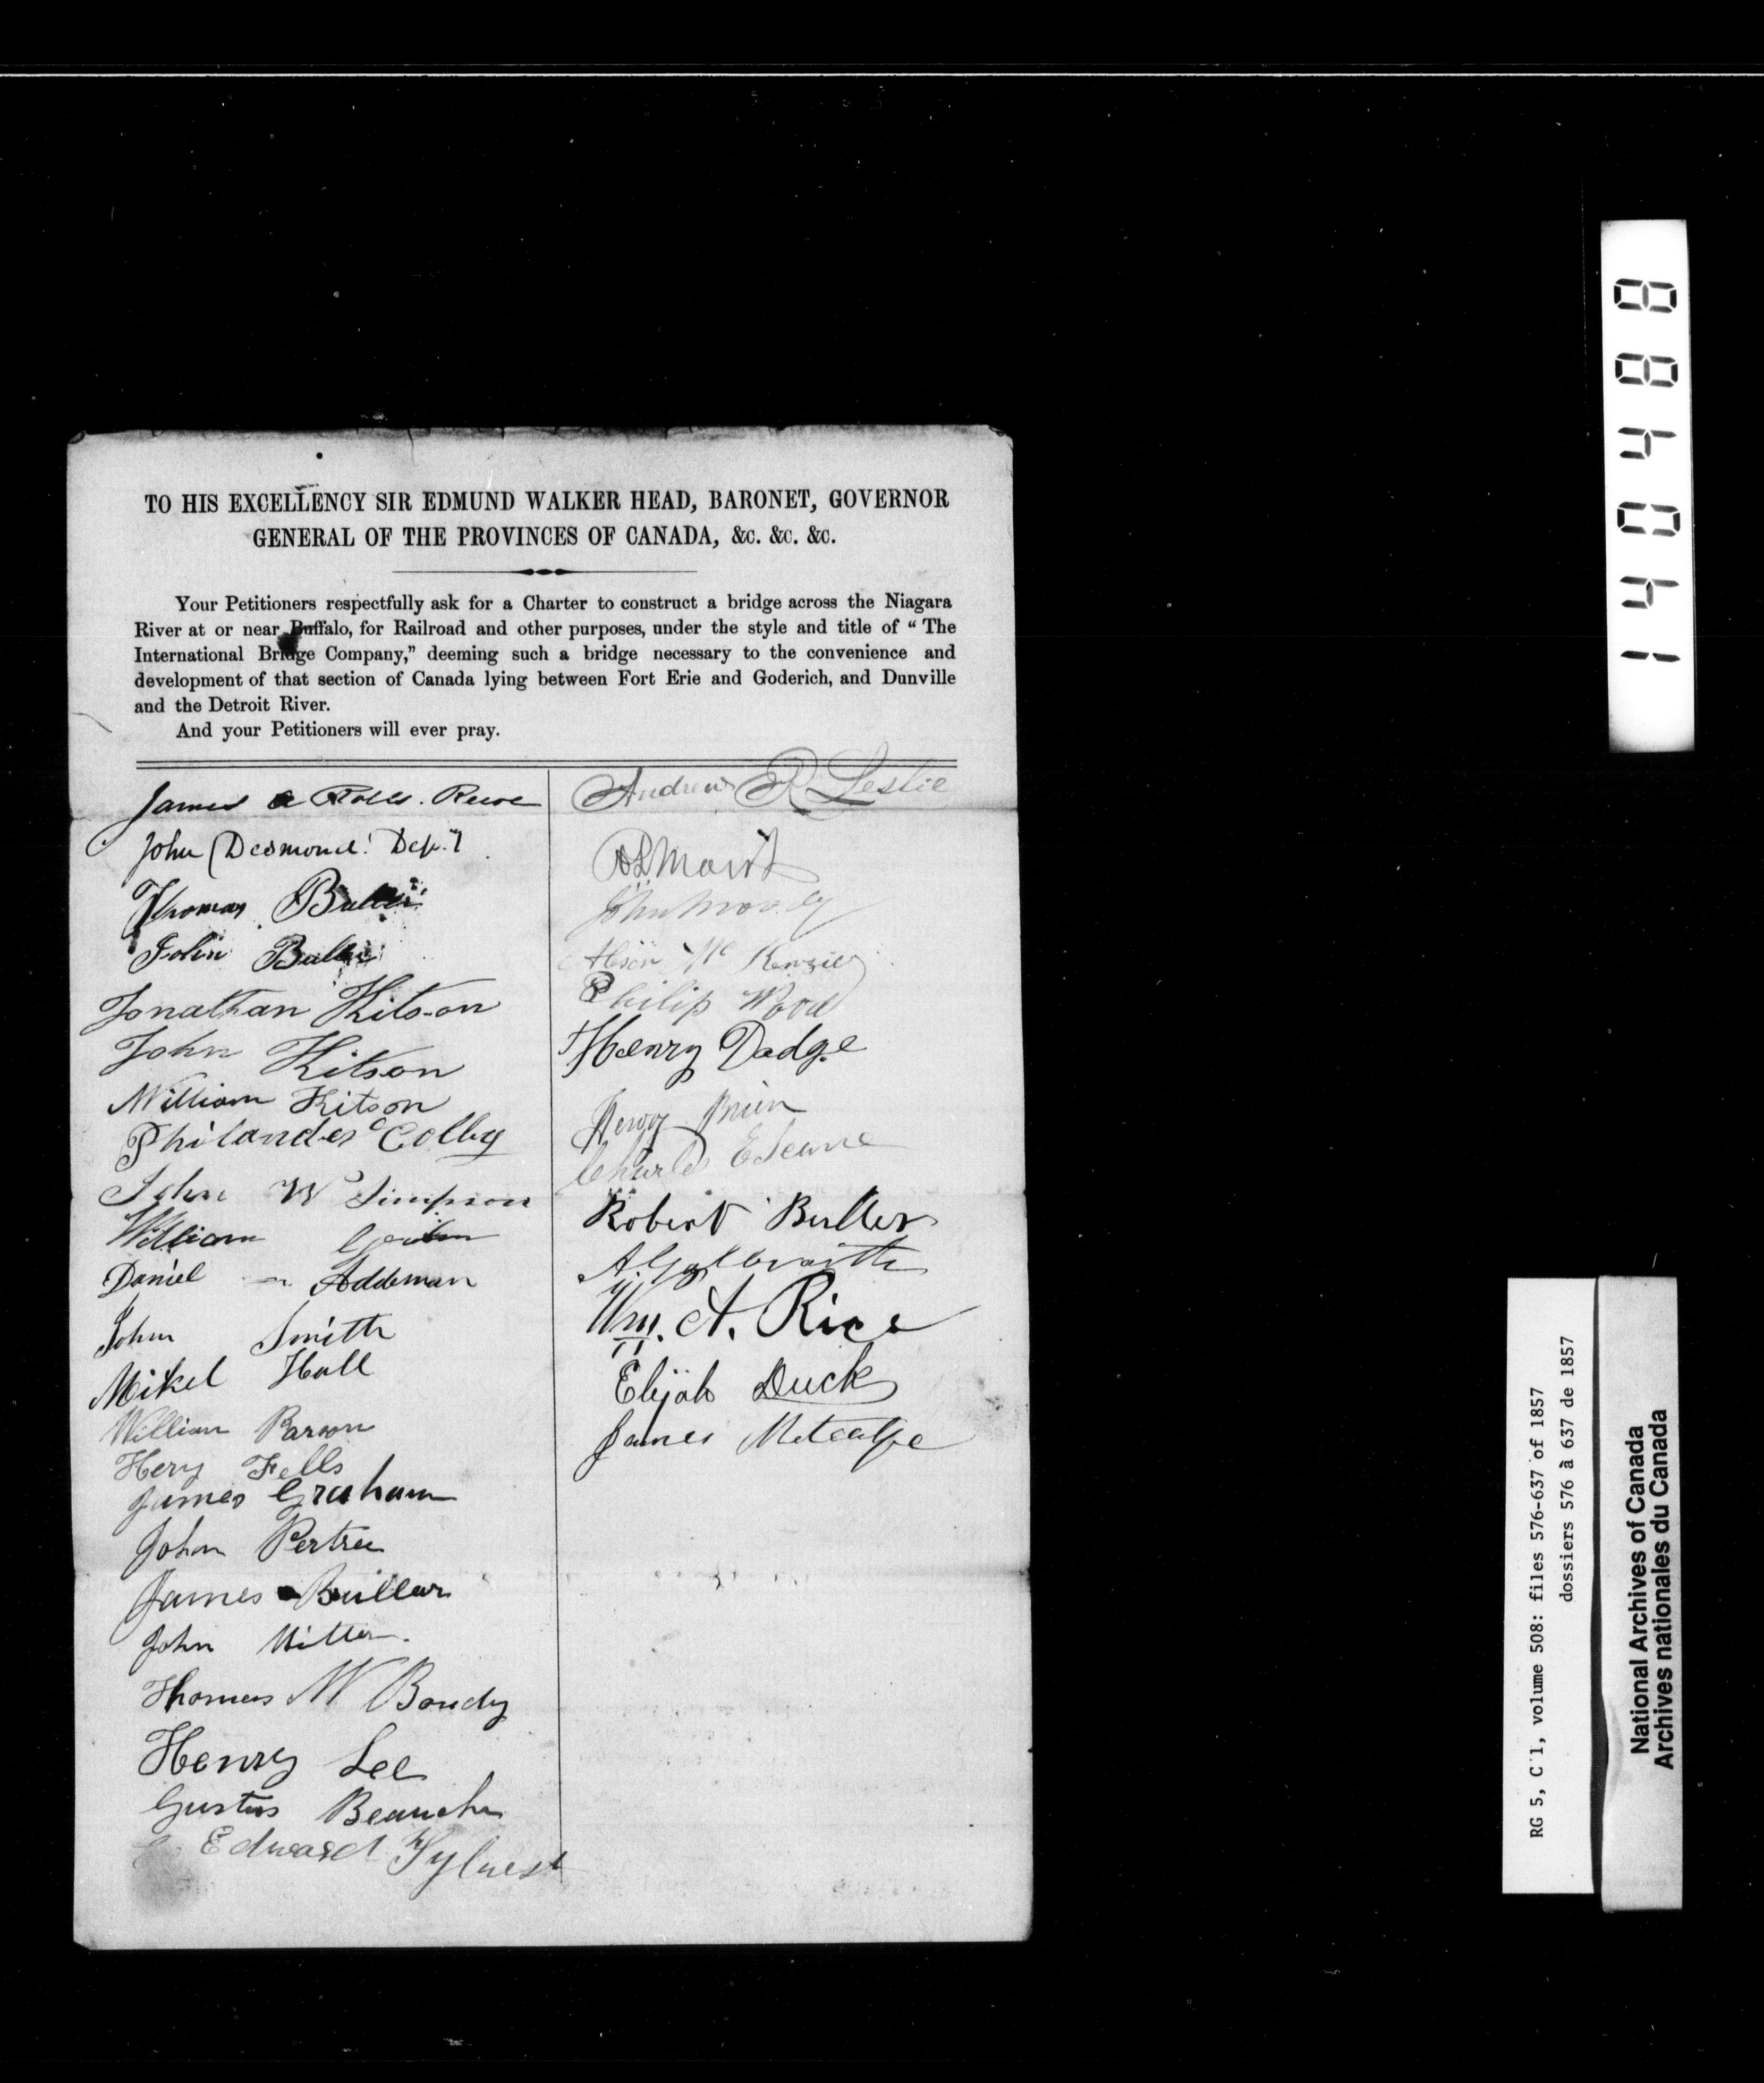 TO HIS EXCELLENCY SIR EDMUND WALKER HEAD, BARONET, GOVERNOR
GENERAL OF THE PROVINCES OF CANADA, &c. &c. &c.
Your Petitioners respectfully ask for a Charter to construct a bridge across the Niagara
River at or near Buffalo, for Railroad and other purposes, under the style and title of “ The
International Bridge Company,” deeming such a bridge necessary to the convenience and
development of that section of Canada lying between Fort Erie and Goderich, and Dunville
and the Detroit River.
And your Petitioners will ever pray.
James
John Desmond Dep.
Thomas
John
Jonathan Kitson
John Kitson
William Kitson
Philander Colby
John W Simpson
William
Daniel Addeman
John Smith
Mikel Hall
William Parson
Hery Fells
James Graham
John Pertree
James Buller
John
Thomas W Boudy
Henry Lee
Gustus
Edward Sylvest
Andrew R Leslie
John Moody
Mc Kenzie
Philip Wood
Henry Dadge
Charles
Robert Butler
Wm. A. Rice
Elijah Duck
James Metcalfe
140488
RG 5, C 1, volume 508: files 576-637 of 1857
dossiers 576 à 637 de 1857
National Archives of Canada
Archives nationales du Canada